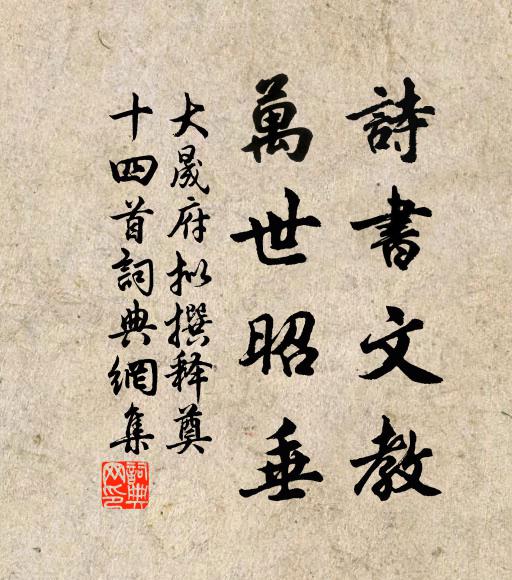 詩書文教
萬世昭垂
大晟府拟撰释奠
十四首詞典網集
詞典網印